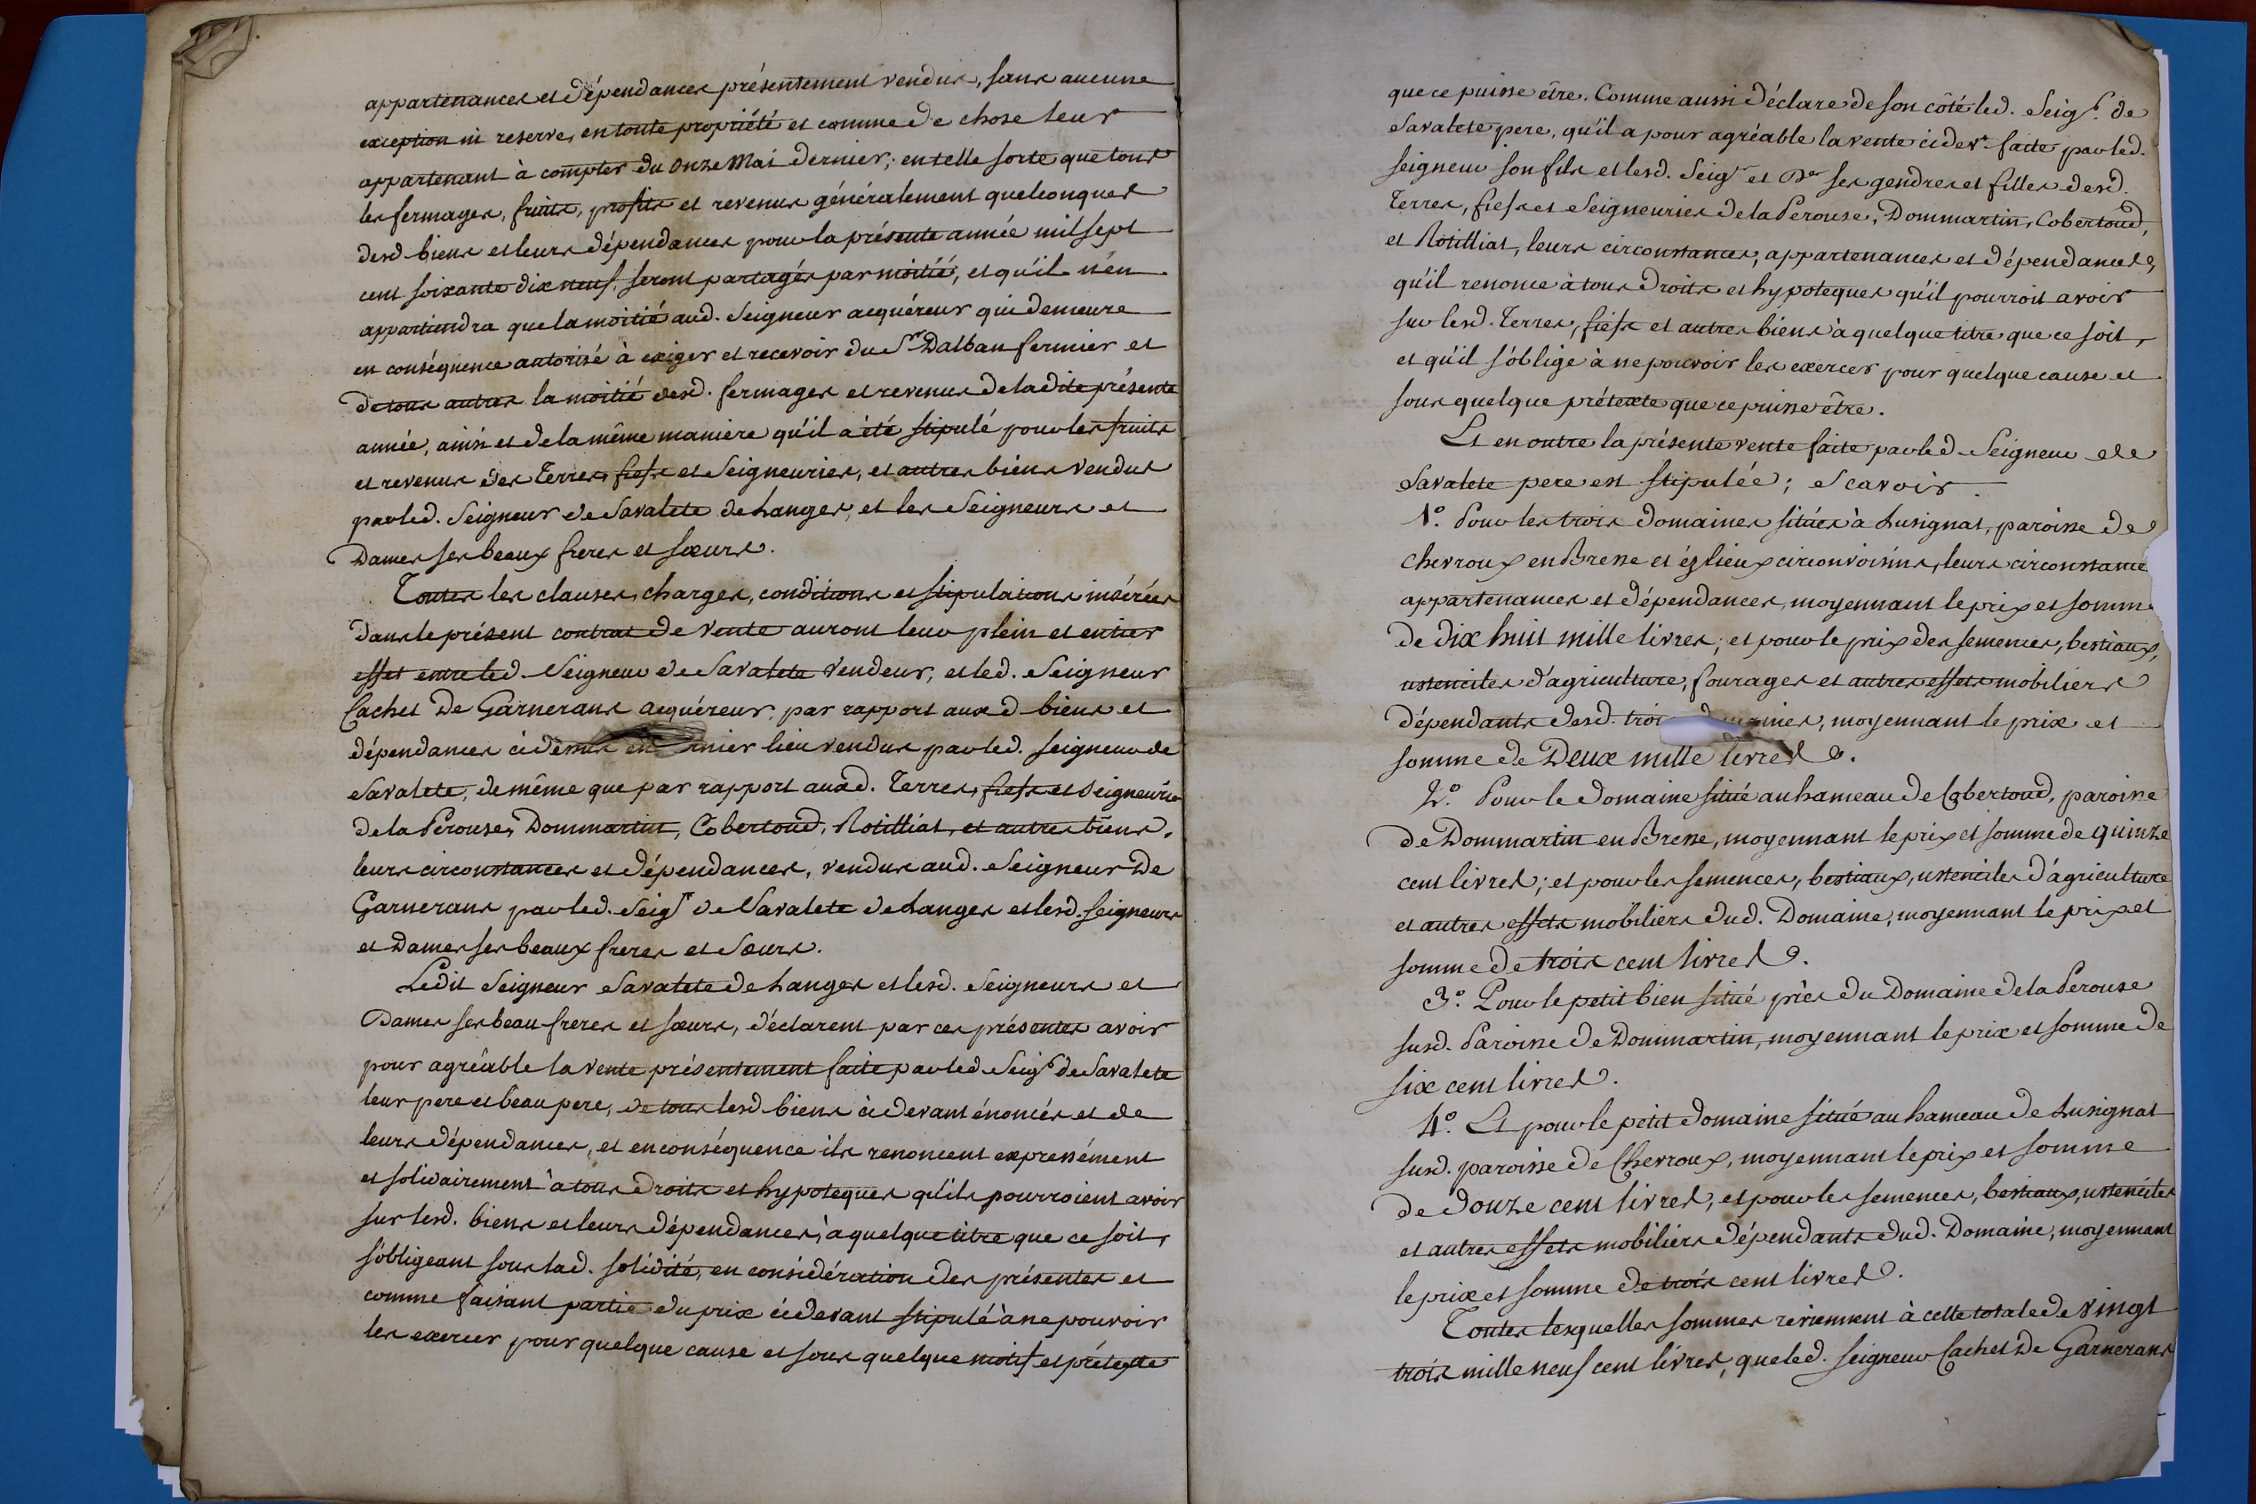 appartenances et dépendances présentement vendus, sans aucune
exception ni reserve, en toute propriété et comme de chose leur
appartenant à compter du onze Mai dernier; en telle sorte que tous
les fermages, fruits, profits et revenus généralement quelconques
desd. biens et leurs dépendances pour la présente année mil sept
cent soixante dix neuf, seront partagés par moitié, et qu'il n'en
appartiendra que la moitié aud. Seigneur acquéreur qui demeure
en conséquence autorisé à exiger et recevoir du Sr. Dalban fermier et
de tous autres la moitié desd. fermages et revenus de ladite présente
année, ainsi et de la même maniere qu'il a été stipulé pour les fruits
et revenus des Terres, fiefs et Seigneuries, et autres biens vendus
par led. Seigneur de Savalete de Langes, et les Seigneurs et
Dames ses beaux freres et sœurs.
Toutes les clauses, charges, conditions et stipulations insérées
dans le présent contrat de vente auront leur plein et entier
effet entre led. Seigneur de Savalete vendeur, et led. Seigneur
Cachet De Garnerans acquéreur, par rapport auxd. biens et
dépendances cidessus en nier lieu vendus par led. Seigneur de
Savalete, de même que par rapport auxd. Terres, fiefs et Seigneuries
de la Pérouse, Dommartin, Cobertoud, Rotilliat, et autres biens,
leurs circonstances et dépendances, vendus aud. Seigneur De
Garnerans par led. Seigr. de Savalete de Langes et lesd. Seigneurs
et Dames ses beaux freres et sœurs.
Ledit Seigneur Savalete de Langes et lesd. Seigneurs et
Dames ses beau freres et sœurs, déclarent par ces présentes avoir
pour agréable la vente présentement faite par led. Seigr. de Savalete
leur pere et beau pere, de tous lesd. biens cidevant énoncés et de
leurs dépendances, et en conséquence ils renoncent expressément
et solidairement à tous droits et hypoteques qu'ils pourroient avoir
sur lesd. biens et leurs dépendances, à quelque titre que ce soit,
s'obligeant sous lad. solidité, en considération des présentes et
comme faisant partie du prix cidevant stipulé à ne pouvoir
les exercer pour quelque cause et sous quelque motif et prétexte
que ce puisse être. Comme aussi déclare de son côté led. Seigr. de
Savalete pere, qu'il a pour agréable la vente cidevt. faite par led.
seigneur son fils et lesd. Seigrs et Des ses gendres et filles desd.
Terres, fiefs et Seigneuries de la Pérouse, Dommartin, Cobertoud,
et Rotilliat, leurs circonstances, appartenances et dépendances,
qu'il renonce à tous droits et hypoteques qu'il pourroit avoir
sur lesd. Terres, fiefs et autres biens à quelque titre que ce soit,
et qu'il s'oblige à ne pouvoir les exercer pour quelque cause et
sous quelque prétexte que ce puisse être.
Et en outre la présente vente faite par led. Seigneur de
Savalete pere est stipulée; Scavoir.
1°. Pour les trois domaines situés à Lusignat, paroisse de
Chevroux en Bresse et ez lieux circonvoisins, leurs circonstance
appartenances et dépendances, moyennant le prix et somme
de dix huit mille livres; et pour le prix des semences, bestiaux,
ustenciles d'agriculture, fourages et autres effets mobiliers
dépendants desd. trois domaines, moyennant le prix et
somme de Deux mille livres.
2°. Pour le domaine situé au hameau de Cobertoud, paroisse
de Dommartin en Bresse, moyennant le prix et somme de quinze
cent livres; et pour les semences, bestiaux, ustenciles d'agriculture
et autres effets mobiliers dud. Domaine, moyennant le prix et
somme de trois cent livres.
3°. Pour le petit bien situé près du Domaine de la Pérouse
susd. Paroisse de Dommartin, moyennant le prix et somme de
six cent livres.
4°. Et pour le petit domaine situé au hameau de Lusignat
susd. paroisse de Chevroux, moyennant le prix et somme
de douze cent livres, et pour les semences, bestiaux, ustenciles
et autres effets mobiliers dépendants dud. Domaine, moyennant
le prix et somme de trois cent livres.
Toutes lesquelles sommes reviennent à celle totale de vingt
trois mille neuf cent livres, que led. Seigneur Cachet De Garnerans